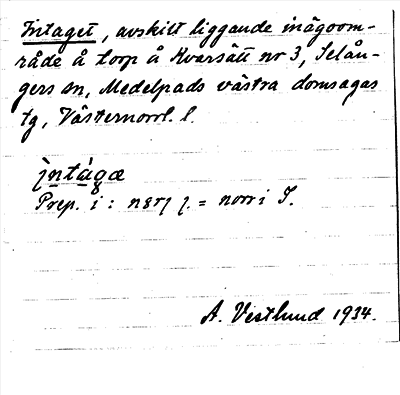 Intaget, avskilt liggande inägoom-
råde å torp å Kvarsätt nr 3, Selån-
gers sn, Medelpads västra domsagas
tg, Västernorrl. l.
ı̀ntágæ
Prep. i : = norr i I.
A. Vestlund 1934.